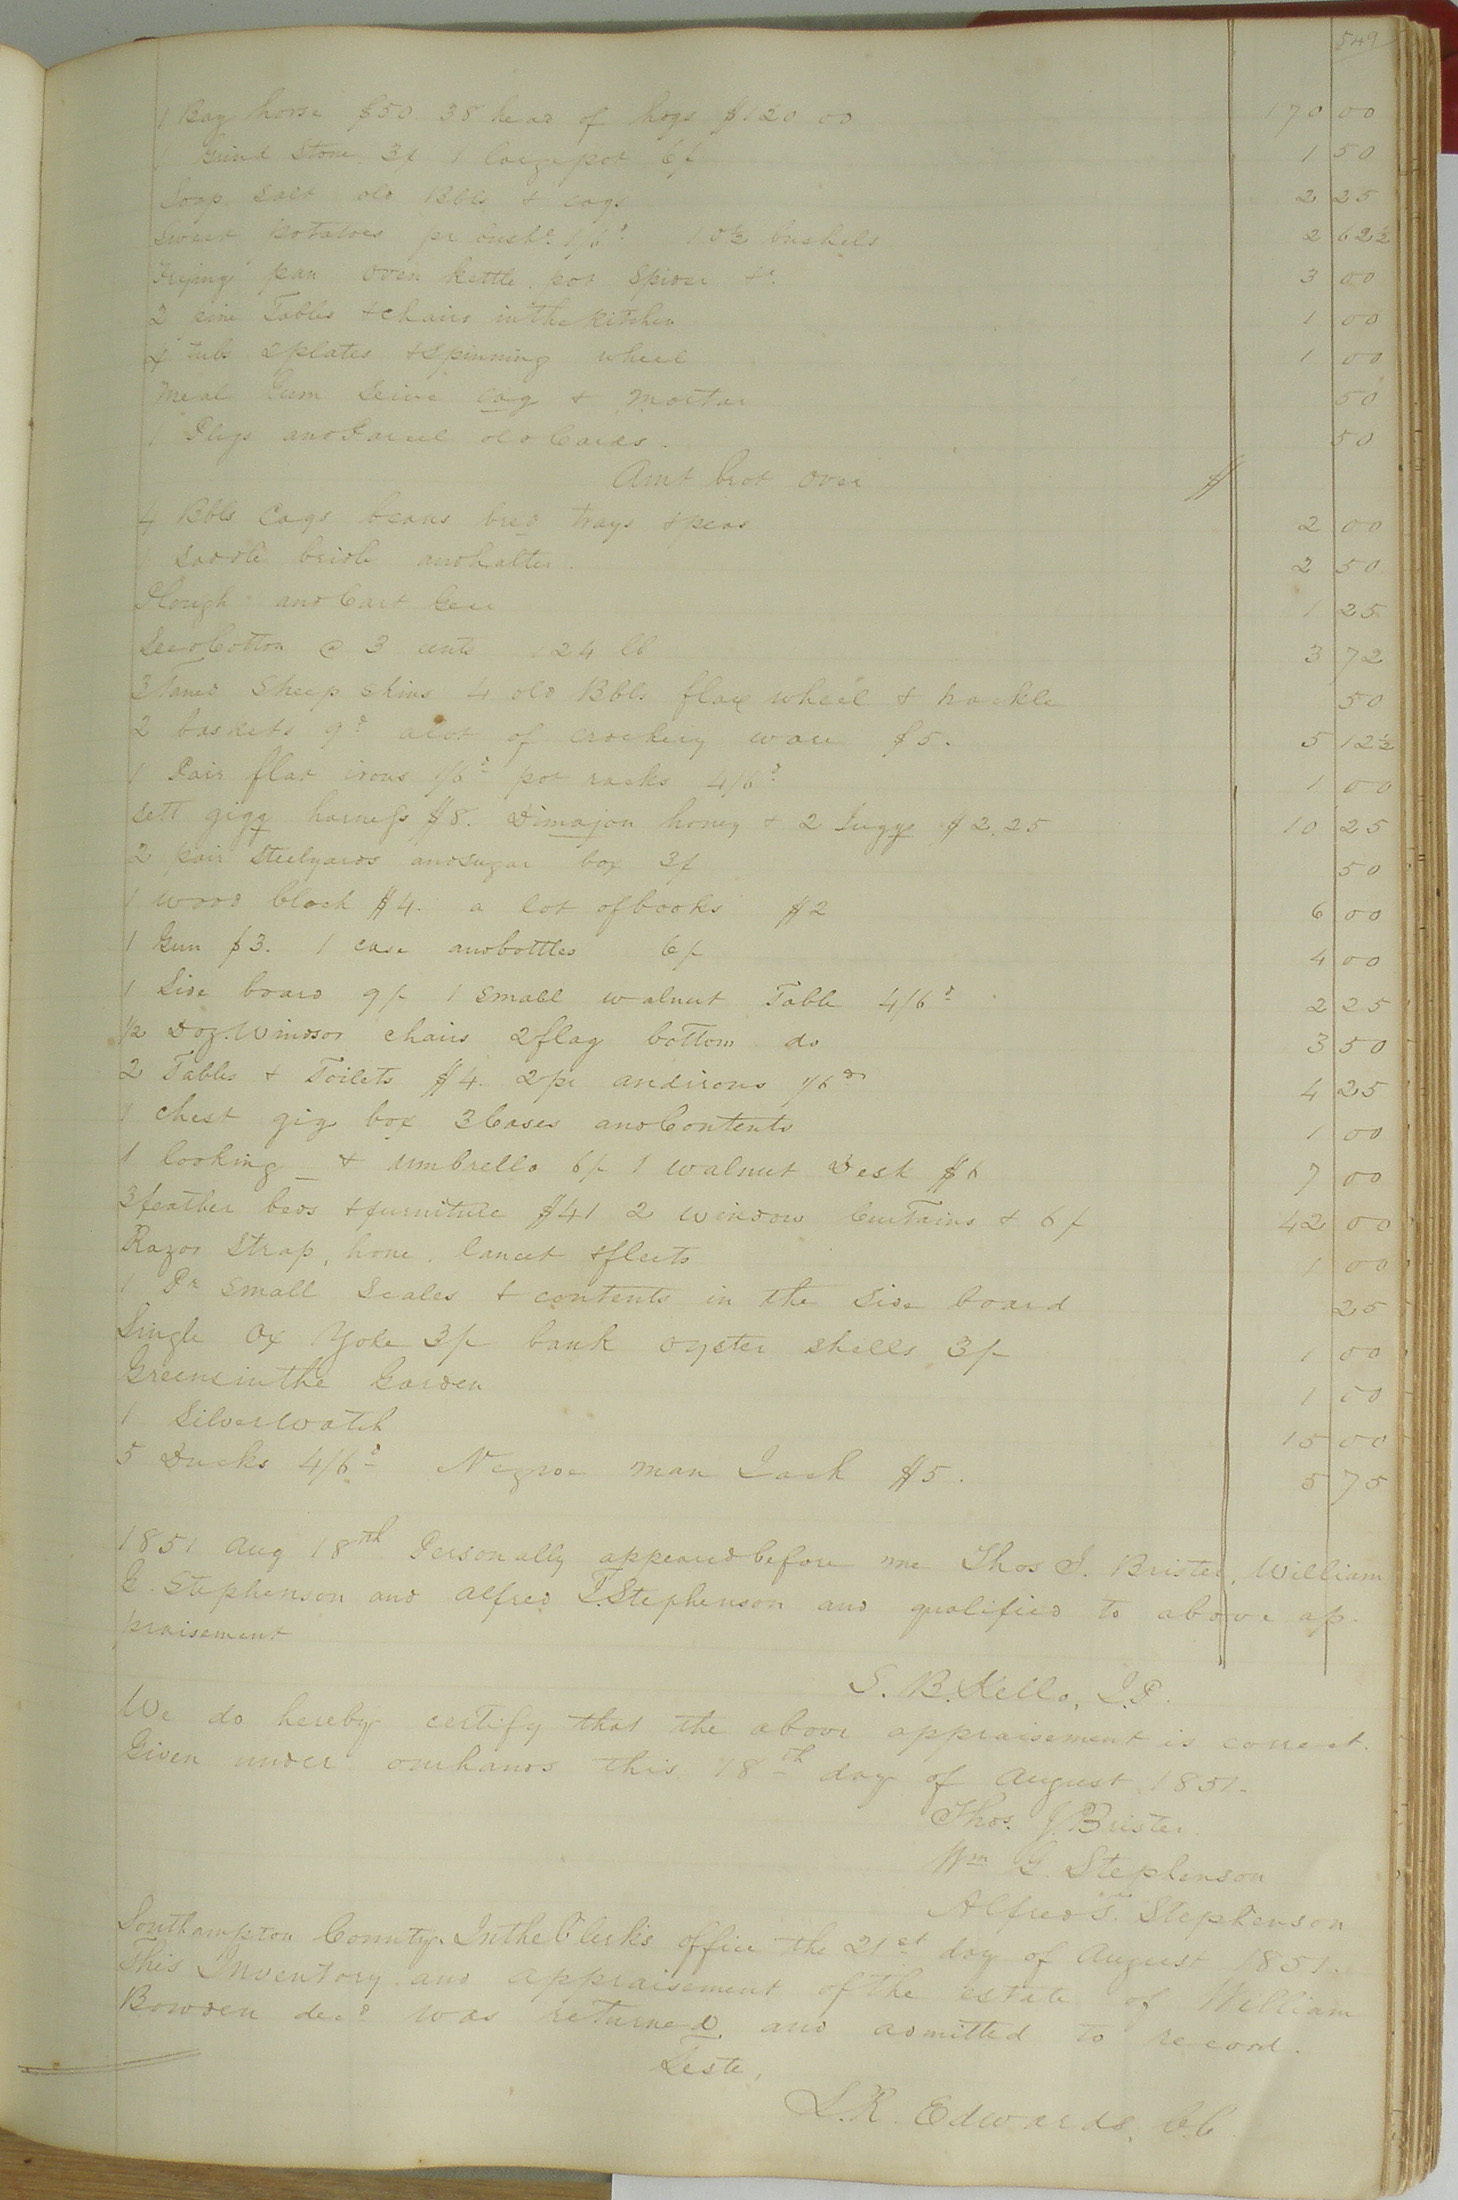 549
1 Bay horse $50. 38 head of hogs $120 00 170 00
1 Grind Stone 3/ 1 large pot 6/ 1 50
Soap Salt old Bbls & cags 2 25
Sweet Potatoes pr bushl. 1/6d. 10½ bushels 2 62½
Frying pan oven kettle pot Spider &c. 3 00
2 pine Tables & chairs in the kitchen 1 00
tubs 2 plates & Spinning wheel 1 00
Meal Gum Seive cag & Mortar 50
1 and Parcel old Cards. 50
Amt brot over $
4 Bbls Cags beans bred trays & peas 2 00
1 Saddle bridle and halter. 2 50
Plough and Cart Gear 1 25
Seed Cotton @ 3 cents 124 lb 3 72
3 Taned Sheep Skins 4 old Bbls. flax wheel & hackle 50
2 baskets 9d. a lot of crockery ware $5. 5 12½
1 Pair flat irons 1/6d pot racks 4/6d 1 00
Sett gigg harness $8. Dimajon honey & 2 Juggs $2.25 10 25
2 pair Steelyards and Sugar box 3/ 50
1 wood block $4. a lot of books $2 6 00
1 Gun $3. 1 case and bottles 6/- 4 00
1 Side board 9/- 1 Small walnut Table 4/6d 2 25
½ Doz. Windsor chairs 2 flag bottom do 3 50
2 Tables & Toilets $4. 2 pr andirons 1/6d 4 25
1 chest gig box 3 Cases and Contents 1 00
1 looking & umbrella 6/- 1 walnut Desk $6 7 00
3 feather beds & furniture $41 2 window Curtains & 6/ 42 00
Razor Strap, hone, lancet & fleets 1 00
1 Pr Small Scales & contents in the Side board 25
Single Ox Yoke 3/- bank oyster shells 3/- 1 00
Greens in the Garden 1 00
1 Silver Watch 15 00
5 Ducks 4/6d Negroe man Jack $5. 5 75
1851 Aug 18th Personally appeared before me Thos J. Brister, William
G. Stephenson and Alfred T. Stephenson and qualified to above ap-
praisement
S. B. Kello, J.P.
We do hereby certify that the above appraisement is correct.
Given under our hands this 18th day of August 1851.
Thos. J. Brister.
Wm G. Stephenson
Alfred T. Stephenson
Southampton County. In the Clerk's office the 21st day of August 1851.
This Inventory and appraisement of the estate of William
Bowden decd was returned, and admitted to record.
Teste,
L. R. Edwards, C.C.